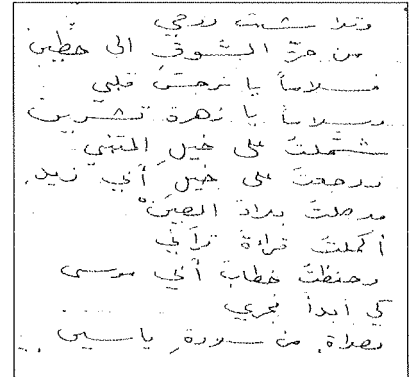 وتلاشت روحي
من حرّ الشوق الى حطين
فسلاماً يا نرجسَ قلبي
وسلاماً يا زهرة تشرين
على خيلِ المتنبي
ورجعتُ على خيلِ أبي زيد
وصلتُ بلادَ الصين
أكملتُ قراءةَ
وحفظتُ خطابَ أبي موسى
كي أبدأ فجري
بصلاة من سورةِ ياسين